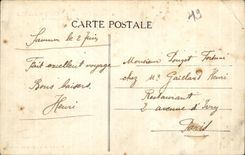 49
CARTE POSTALE
Saumur le 2 juin
Fait excellent voyage
Bons baisers,
Henri
Monsieur Fortuné
chez Mr Gaillard Henri
Restaurant
2 avenue d'Ivry
Paris